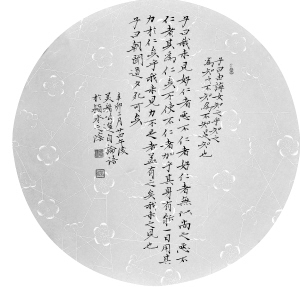 子曰由誨女知之乎知之
為知之不知為不知是知也
子曰我未見好仁者惡不仁者好仁者無以尚之惡不
仁者其為仁矣不使不仁者加乎其身有能一日用其
力於仁矣乎我未見力不足者蓋有之矣我未之見也
子曰朝聞道夕死可矣
辛卯三月廿四
自論語